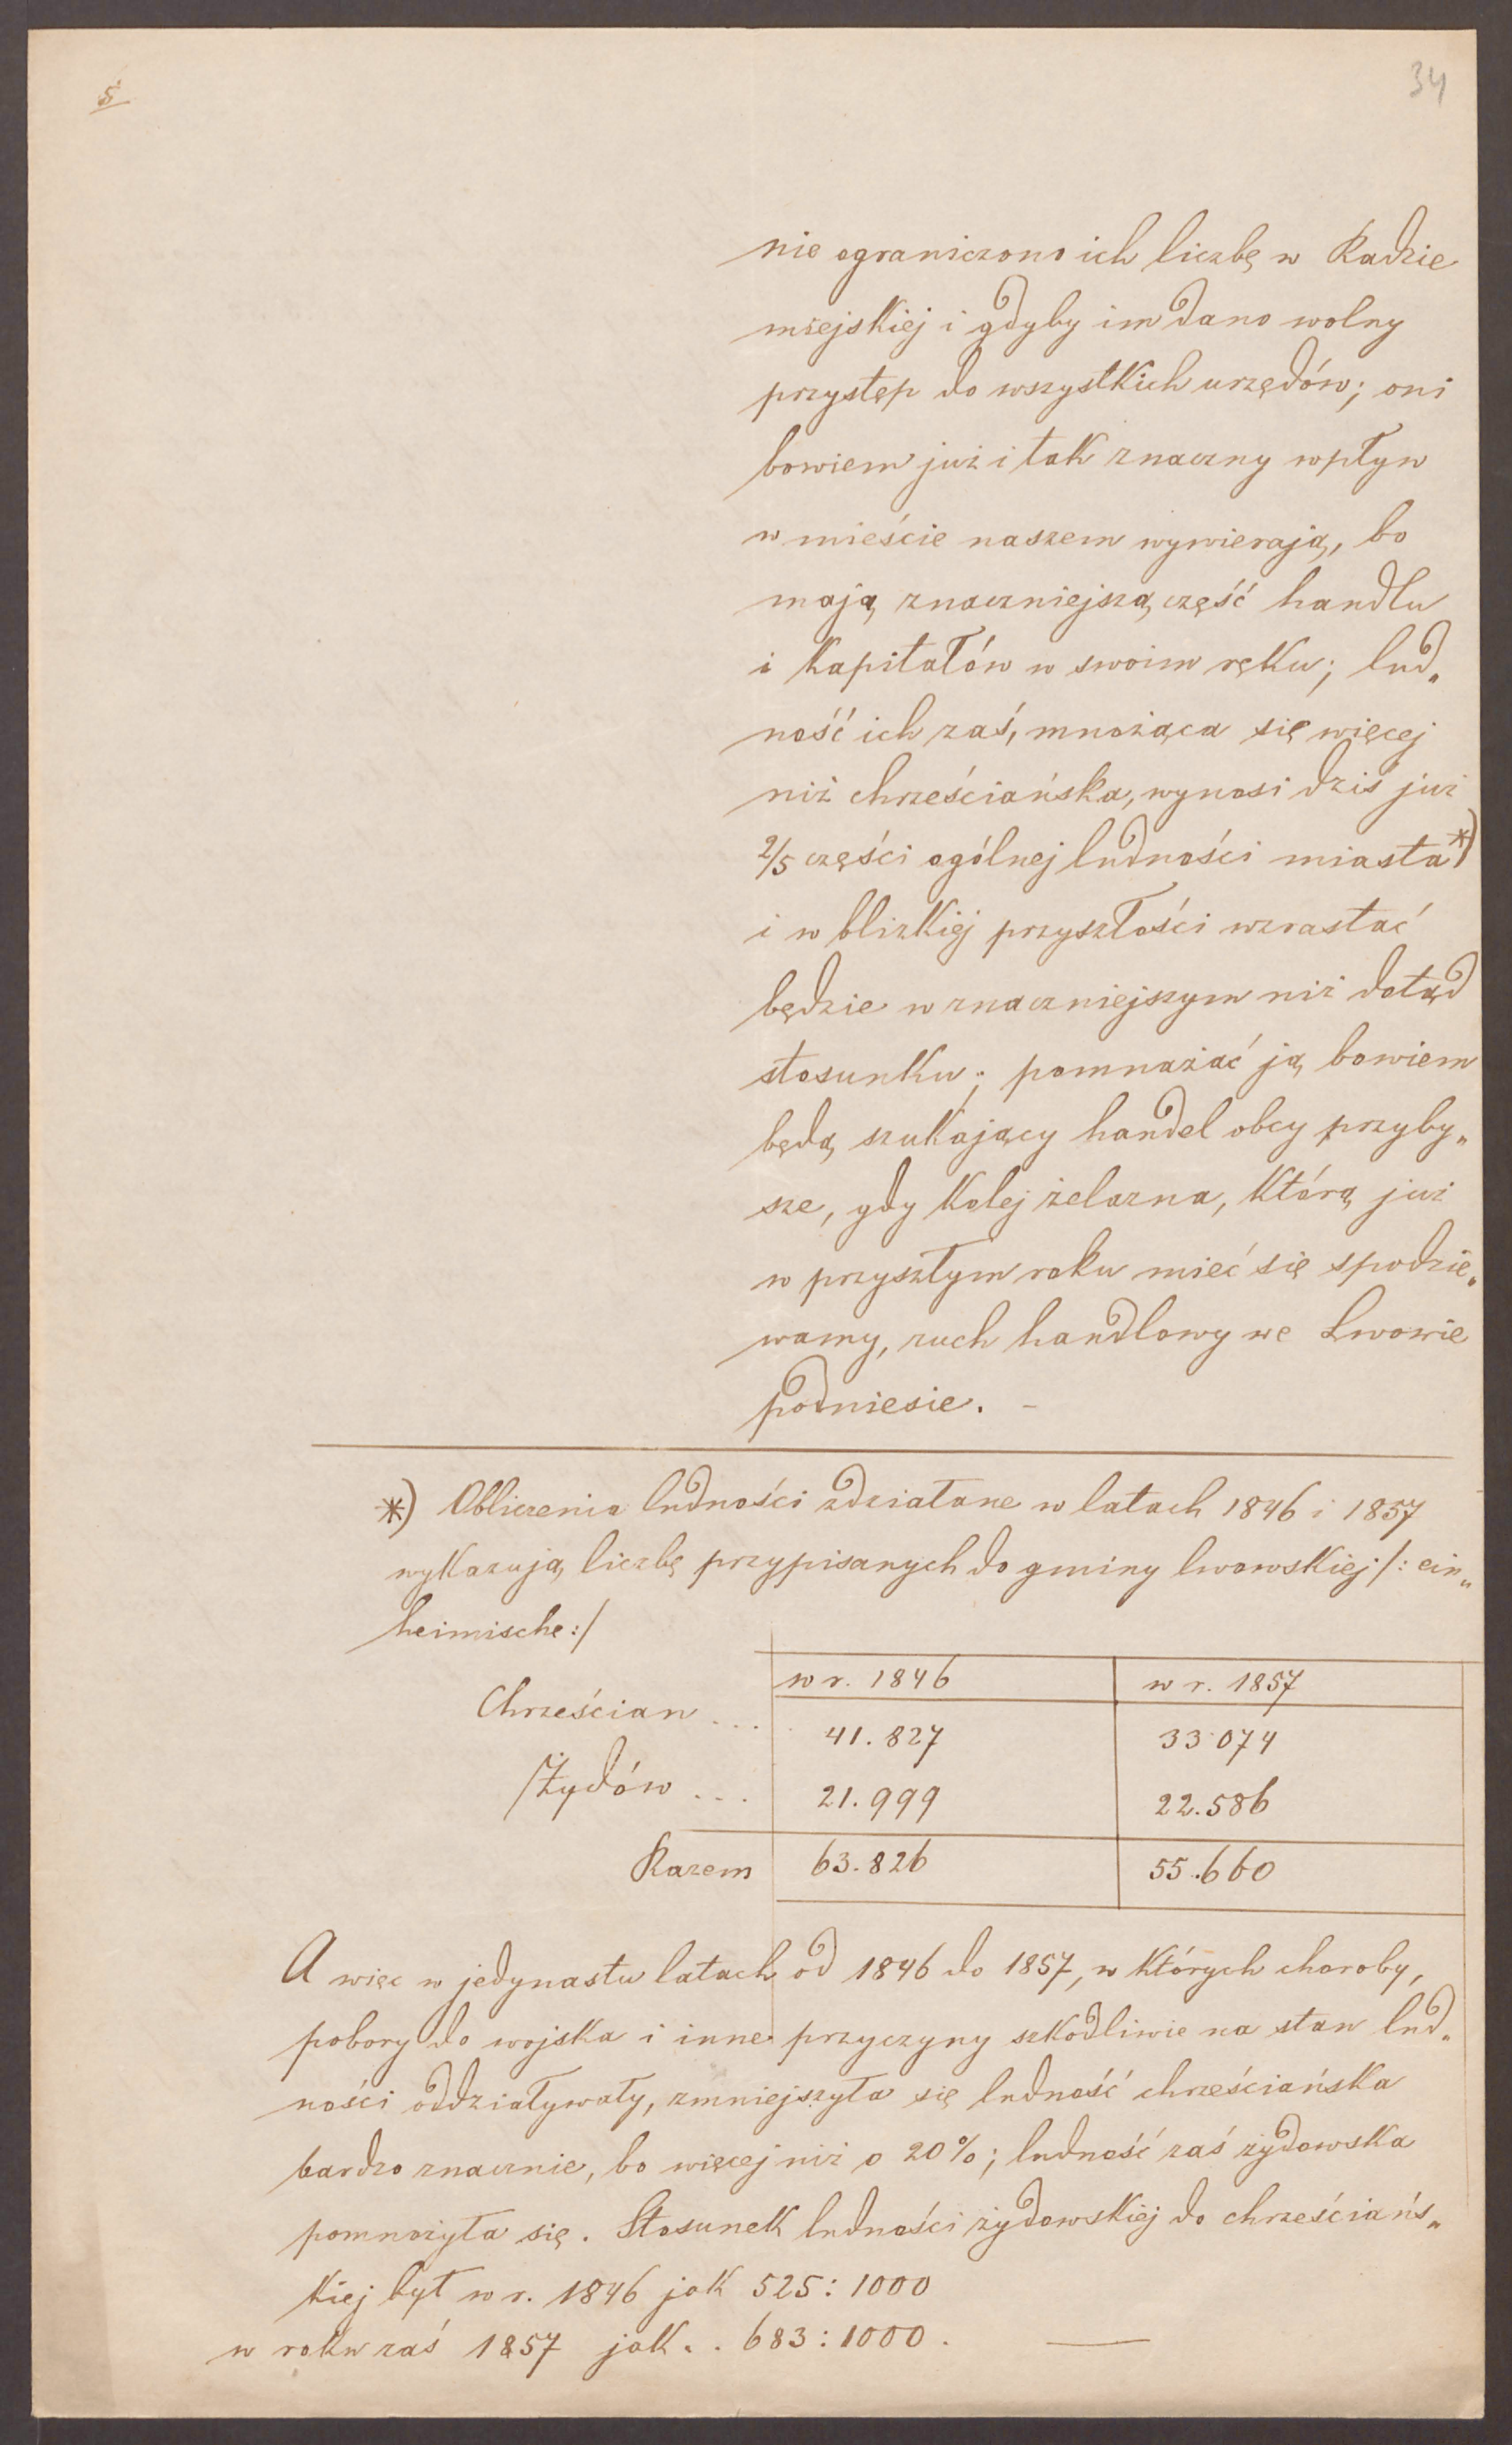 5
34
nie ograniczono ich liczbę w Radzie
miejskiej i gdyby im dano wolny
przystęp do wszystkich urzędów; oni
bowiem już i tak znaczny wpływ
w mieście naszem wywierają, bo
mają znaczniejszą część handlu
i kapitałów w swoim ręku; lud„
ność ich zaś, mnożąca się więcej
niż chrześciańska, wynosi dziś już
2/5 części ogólnej ludności miasta*)
i w blizkiej przyszłości wzrastać
będzie w znaczniejszym niż dotąd
stosunku; pomnażać ją bowiem
będą szukający handel obcy przyby„
sze, gdy kolej żelazna, którą już
w przyszłym roku mieć się spodzie„
wamy, ruch handlowy we Lwowie
podniesie. -
*) Obliczenia ludności zdziałane w latach 1846 i 1857
wykazują liczbę przypisanych do gminy lwowskiej /: ein„
heimische :/
w r. 1846 w r. 1857
Chrześcian ... 41.827 33.074
Żydów ... 21.999 22.586
Razem 63.826 55.660
A więc w jedynastu latach od 1846 do 1857, w których choroby,
pobory do wojska i inne przyczyny szkodliwie na stan lud„
ności oddziaływały, zmniejszyła się ludność chrześciańska
bardzo znacznie, bo więcej niż o 20%; ludność zaś żydowska
pomnożyła się. Stosunek ludności żydowskiej do chrześciańs„
kiej był w r. 1846 jak 525 : 1000
w roku zaś 1857 jak . . 683 : 1000 .